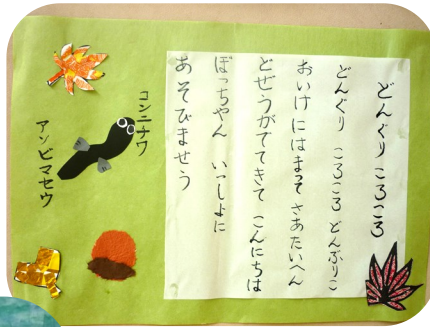 どんぐりころころ
どんぐり ころころ どんぶりこ
おいけにはまって さあたいへん
どぜうがでてきて こんにちは
ぼっちやん いっしよに
あそびませう
コンニチワ
アソビマセウ